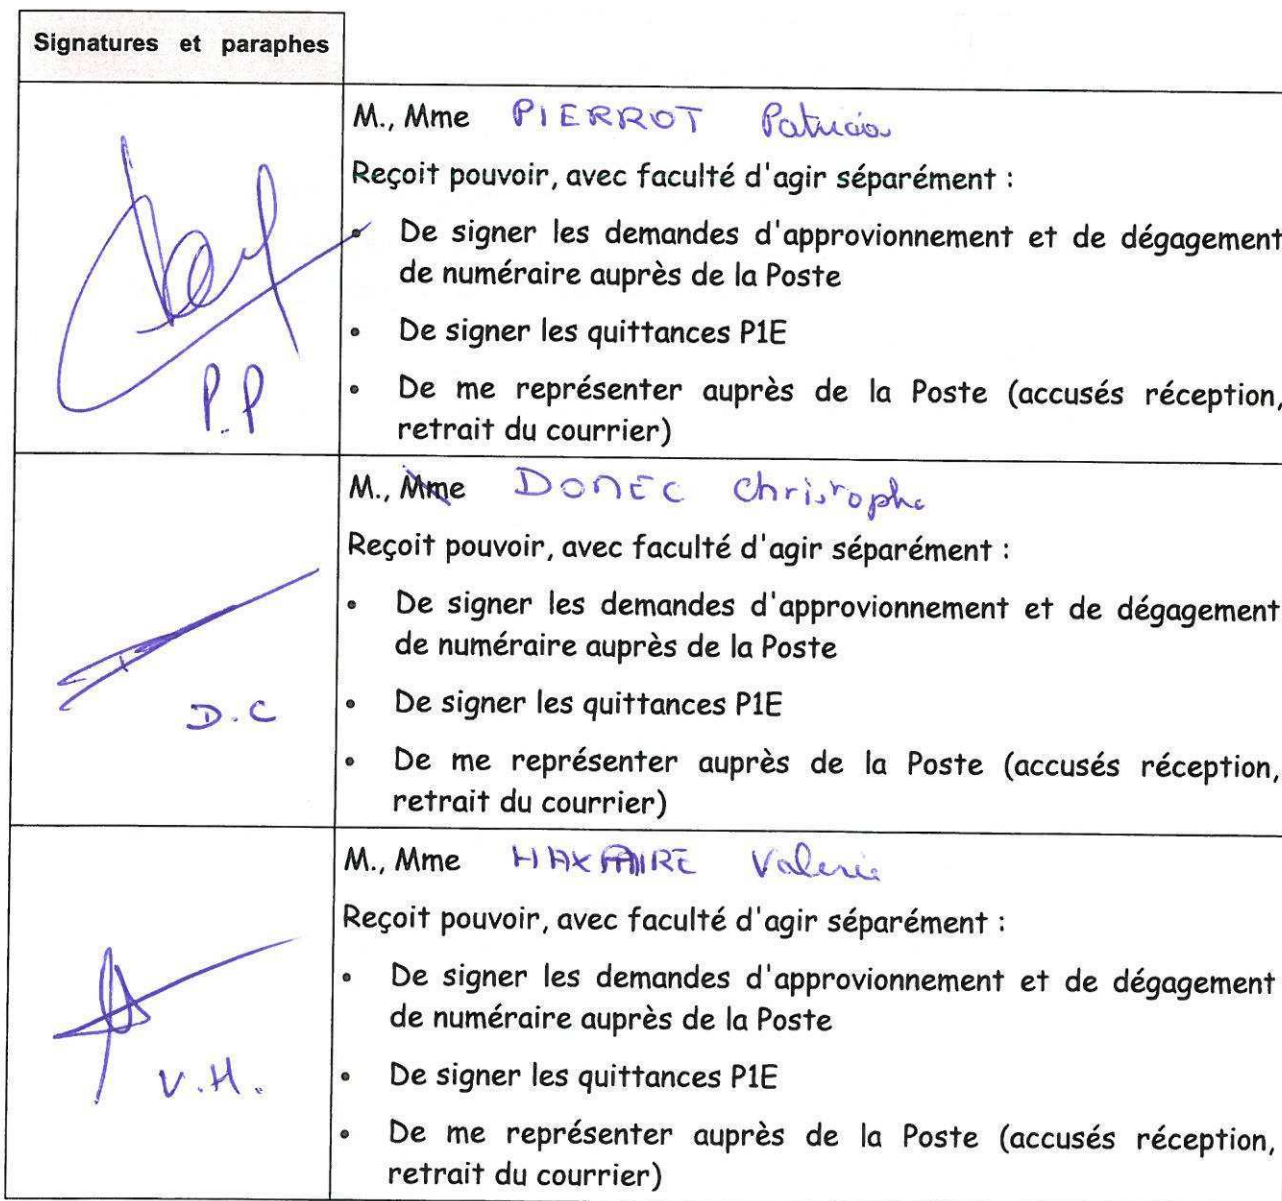 Signatures et paraphes
M., Mme PIERROT Patricia
Reçoit pouvoir, avec faculté d'agir séparément :
• De signer les demandes d'approvionnement et de dégagement
de numéraire auprès de la Poste
• De signer les quittances P1E
• De me représenter auprès de la Poste (accusés réception,
retrait du courrier)
P.P
M., Mme DONEC Christophe
Reçoit pouvoir, avec faculté d'agir séparément :
• De signer les demandes d'approvionnement et de dégagement
de numéraire auprès de la Poste
• De signer les quittances P1E
• De me représenter auprès de la Poste (accusés réception,
retrait du courrier)
D.C
M., Mme HAXAIRE Valerie
Reçoit pouvoir, avec faculté d'agir séparément :
• De signer les demandes d'approvionnement et de dégagement
de numéraire auprès de la Poste
• De signer les quittances P1E
• De me représenter auprès de la Poste (accusés réception,
retrait du courrier)
V.H.